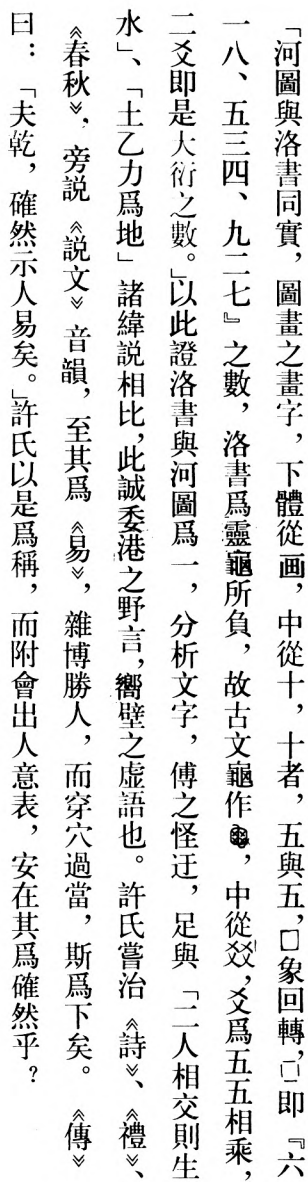 「河圖與洛書同實，圖畫之畫字，下體從画，中從十，十者，五與五，囗象回轉，囗即『六
一八、五三四、九二七』之數，洛書爲靈龜所負，故古文龜作，中從㸚，爻爲五五相乘，
二爻即是大衍之數。」以此證洛書與河圖爲一，分析文字，傅之怪迂，足與「二人相交則生
水」、「土乙力爲地」諸緯説相比，此誠委港之野言，嚮壁之虛語也。許氏嘗治《詩》、《禮》、
《春秋》，旁説《説文》音韻，至其爲《易》，雜博勝人，而穿穴過當，斯爲下矣。《傳》
曰：「夫乾，確然示人易矣。」許氏以是爲稱，而附會出人意表，安在其爲確然乎？